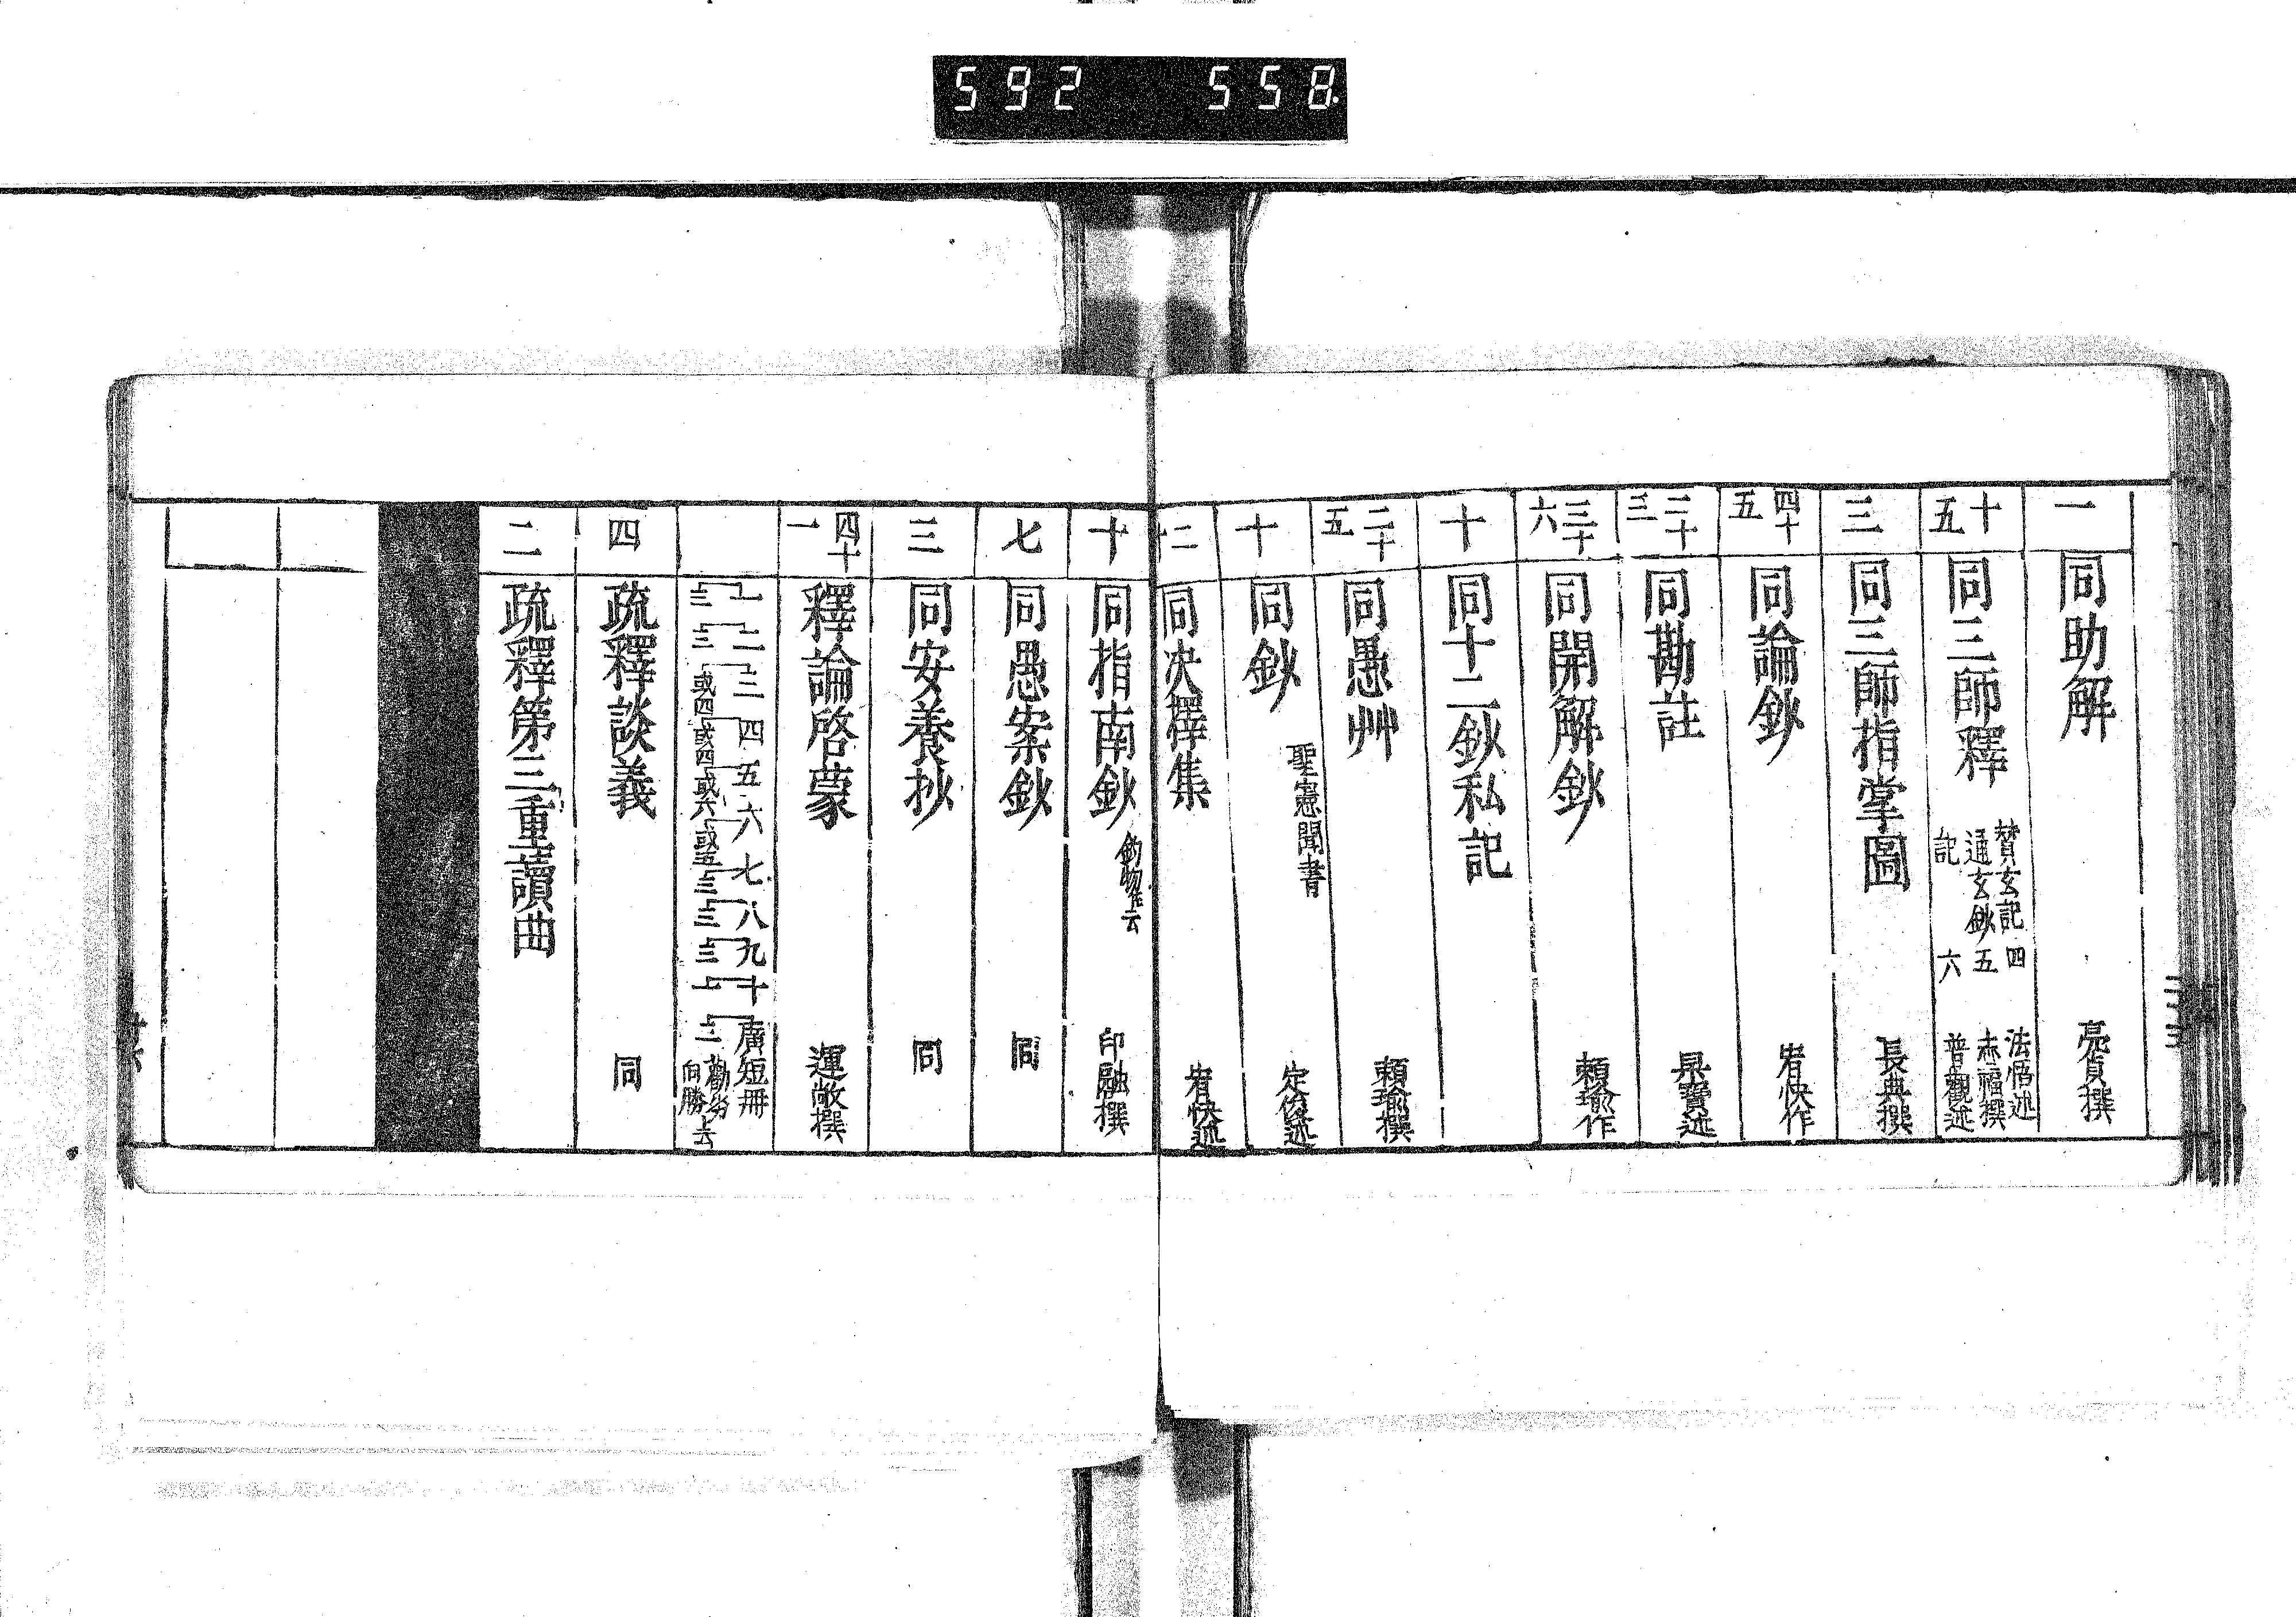 592 558.
一 同助解 亮賀撰
十五 同三師釋 賛玄記四 法悟述
通玄鈔五 赤福撰
記六 普觀述
三 同三師指掌圖 長典撰
四十五 同論鈔 宥快作
二十三 同勘註 杲寶述
三十六 同開解鈔 頼瑜作
十 同十二鈔私記
二十五 同愚艸 頼瑜撰
十 同鈔 聖憲聞書 定俊述
十二 同决擇集 宥快述
十 同指南鈔 印融撰
七 同愚案鈔 同
三 同安養抄 同
四十一 釋論啓蒙 運敞撰
一 二 三 四 五 六 七 八 九 十 廣短冊
三 三 或四 或四 或六 或五 三 三 三 上 二 勸劣向勝上云
四 疏釋談義 同
二 疏釋第三重讀曲